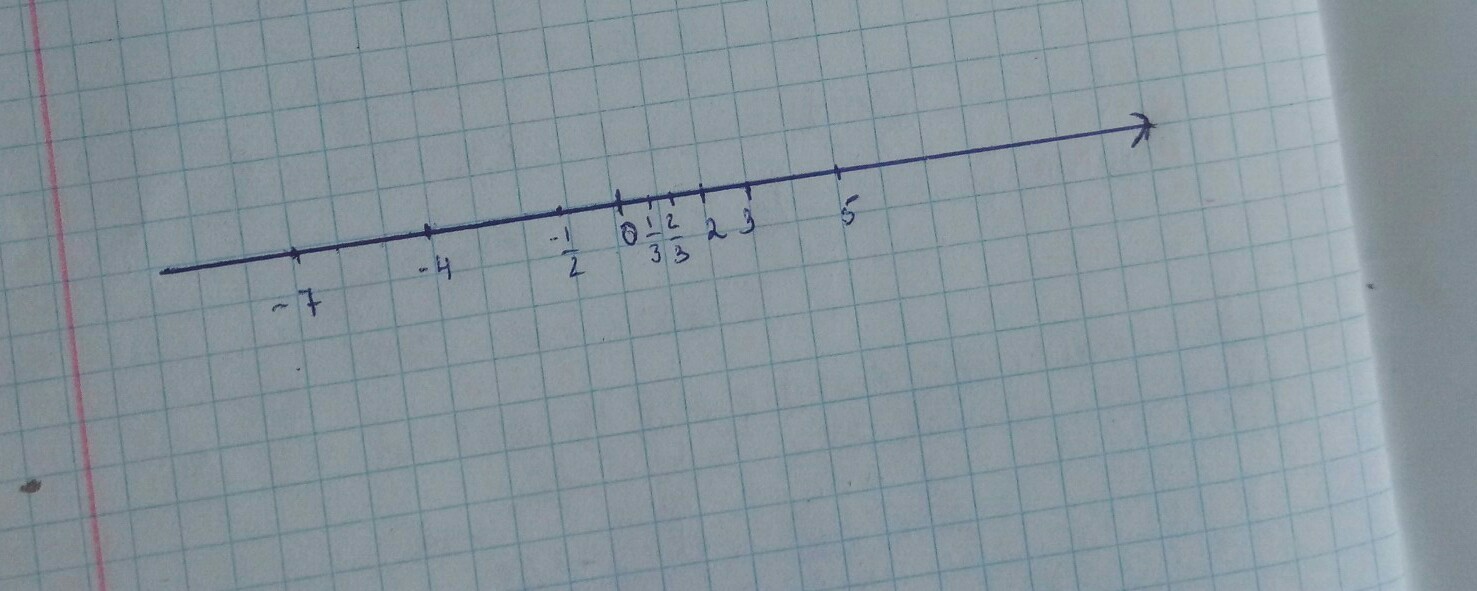 -7 -4 -1/2 0 1/3 2/3 2 3 5